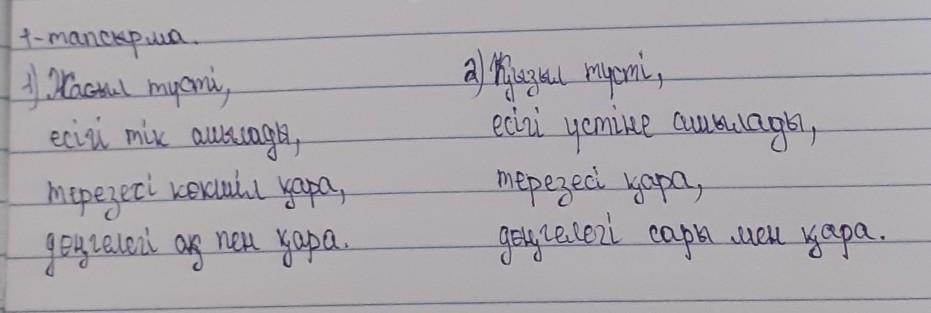 1-тапсырма.
1) Жасыл түсті,
есігі тік ашылады,
терезесі көкшіл қара,
дөңгелегі ақ пен қара.
2) Қызыл түсті,
есігі үстіне ашылады,
терезесі қара,
дөңгелегі сары мен қара.